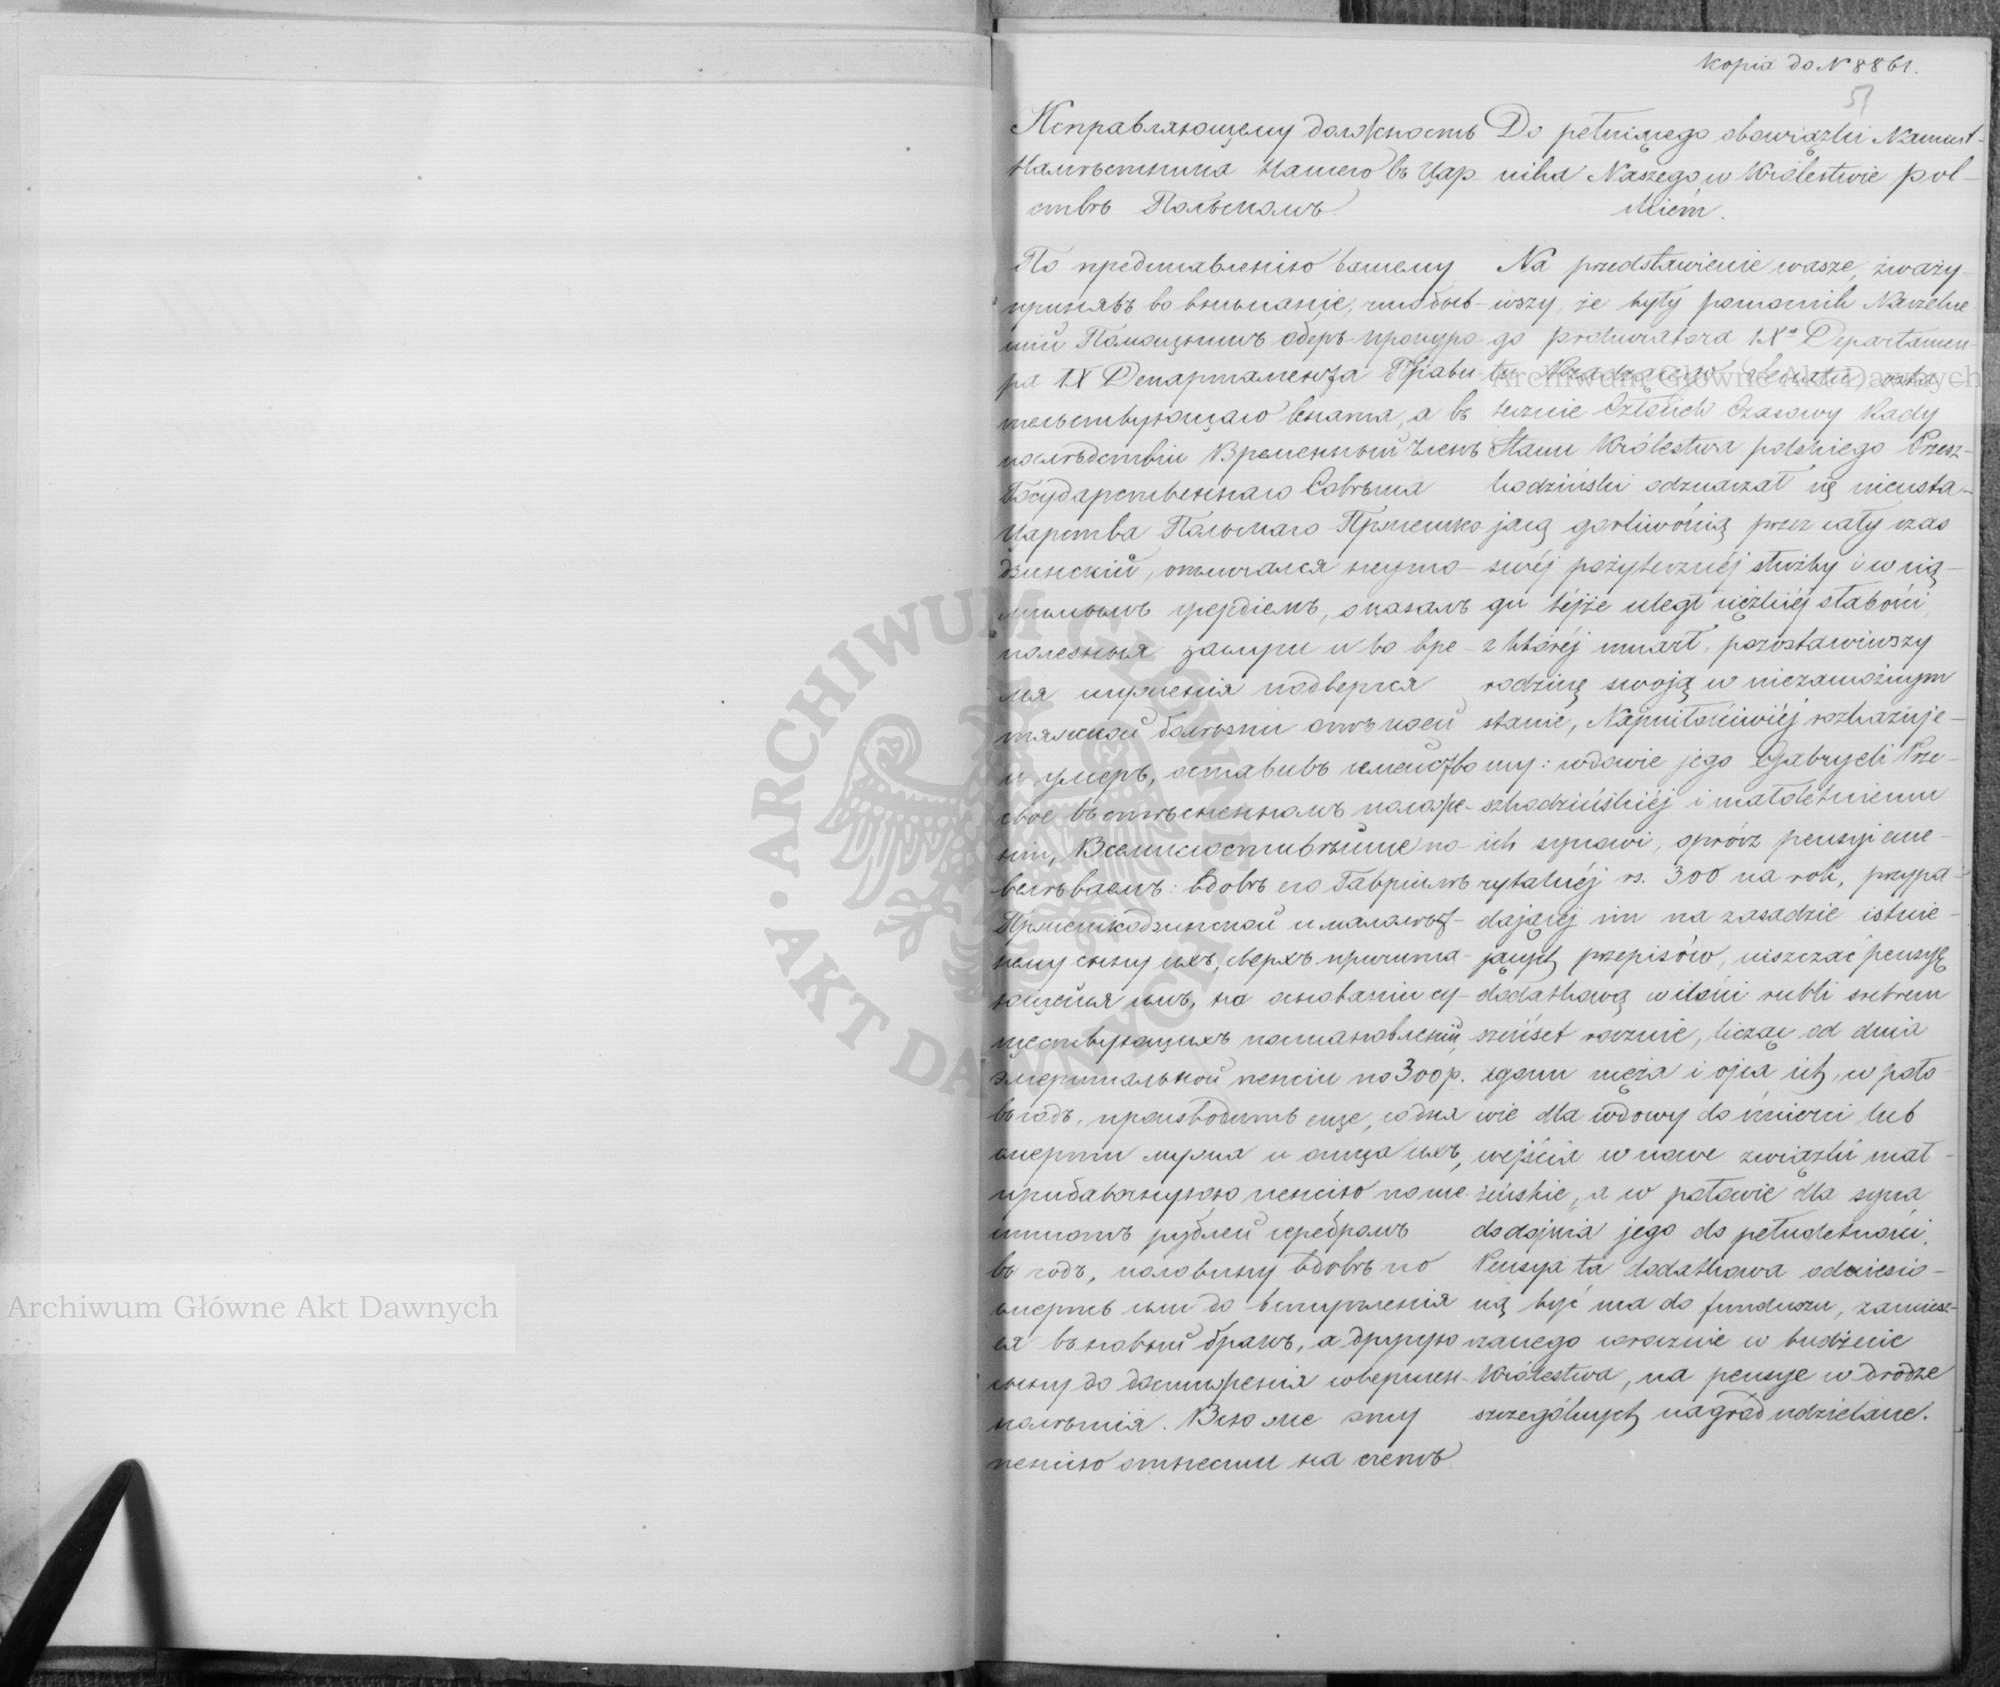 Kopia do N 8861.
51
Исправляющему должность
Намѣстника Нашего въ Цар-
ствѣ Польскомъ.
По представленію вашему
принявъ во вниманіе, что быв-
шій Помощникъ оберъ-прокуро-
ра IX Департамента Прави-
тельствующаго Сената, а въ
послѣдствіи Временный Членъ
Государственнаго Совѣта
Царства Польскаго Пржешко-
дзинскій, отличался неуто-
мимымъ усердіемъ, оказалъ
полезныя заслуги и во вре-
мя служенія подвергся
тяжкой болѣзни отъ коей
и умеръ, оставивъ семейство
свое въ стѣсненномъ положе-
ніи, Всемилостивѣйше по-
велѣваемъ: вдовѣ его Габріелѣ
Пржешкодзинской и малолѣт-
нему сыну ихъ, сверхъ причита-
ющейся имъ, на основаніи су-
ществующихъ постановленій
эмеритальной пенсіи по 300 р.
въ годъ, производить еще, со дня
смерти мужа и отца ихъ,
прибавочную пенсію по ше-
стисотъ рублей серебромъ
въ годъ, половину вдовѣ по
смерть или до вступленія
ея въ новый бракъ, а другую
сыну до достиженія совершен-
нолѣтія. Всю же эту
пенсію отнести на счетъ
Do pełniącego obowiązki Namiest-
nika Naszego w Królestwie Pol-
skiém.
Na przedstawienie wasze, zważy-
wszy, że były pomocnik Naczelne-
go prokuratora IX° Departamen-
tu Rządzącego Senatu, osta-
tecznie Członek Czasowy Rady
Stanu Królestwa polskiego Przesz-
kodziński odznaczał się nieusta-
jącą gorliwością przez cały czas
swéj pożytecznéj służby i w cią-
gu téjże uległ ciężkiéj słabości,
z któréj umarł, pozostawiwszy
rodzinę swoją w niezamożnym
stanie, Najmiłościwiéj rozkazuje-
my: wdowie jego Gabryeli Prze-
szkodzińskiéj i małoletniemu
ich synowi, oprócz pensyi eme-
rytalnéj rs. 300 na rok, przypa-
dającéj im na zasadzie istnie-
jących przepisów, uiszczać pensyę
dodatkową w ilości rubli srebrem
sześćset rocznie, licząc od dnia
zgonu męża i ojca ich, w poło-
wie dla wdowy do śmierci lub
wejścia w nowe związki mał-
żeńskie, a w połowie dla syna
do dojścia jego do pełnoletności.
Pensya ta dodatkowa odniesio-
ną być ma do funduszu, zamiesz-
czanego corocznie w budżecie
Królestwa, na pensye w drodze
szczególnych nagród udzielane.
Archiwum Główne Akt Dawnych
Archiwum Główne Akt Dawnych
ARCHIWUM GŁÓWNE AKT DAWNYCH